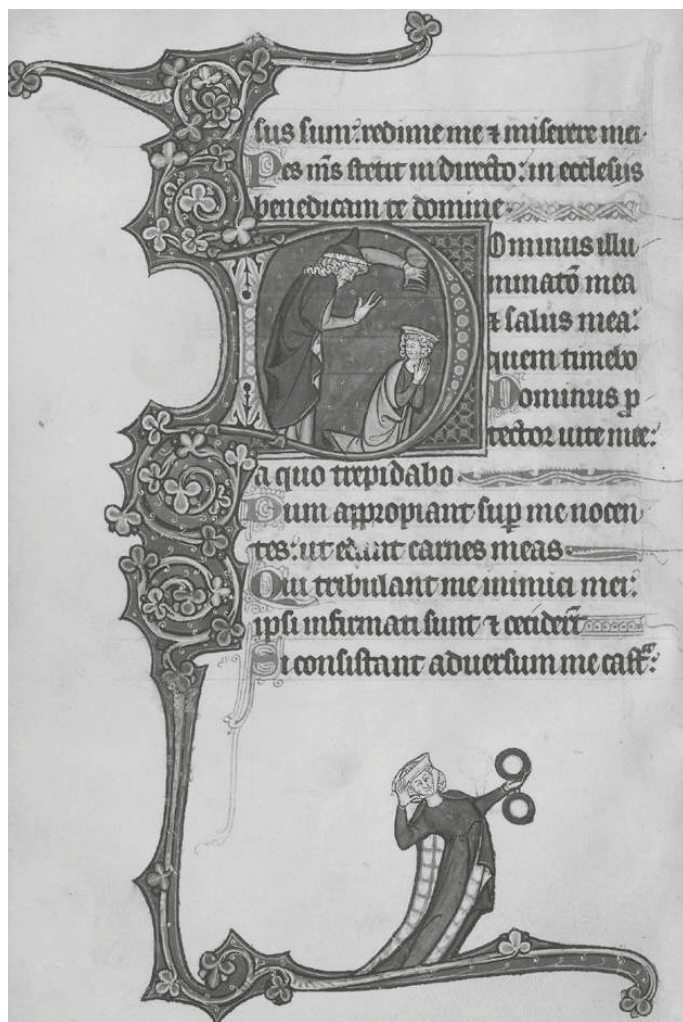 sus sum: redime me ⁊ miserere mei.
Pes m̅s stetit in directo: in ecclesiis
benedicam te domine.
Dominus illu
minato̅ mea
⁊ salus mea:
quem timebo
Dominus ꝓ
tector uite mee:
a quo trepidabo.
Dum appropiant sup̱ me nocen
tes: ut edant carnes meas.
Qui tribulant me inimici mei:
ipsi infirmati sunt ⁊ cecider̅t
Si consistant aduersum me cast̅ᵃ: